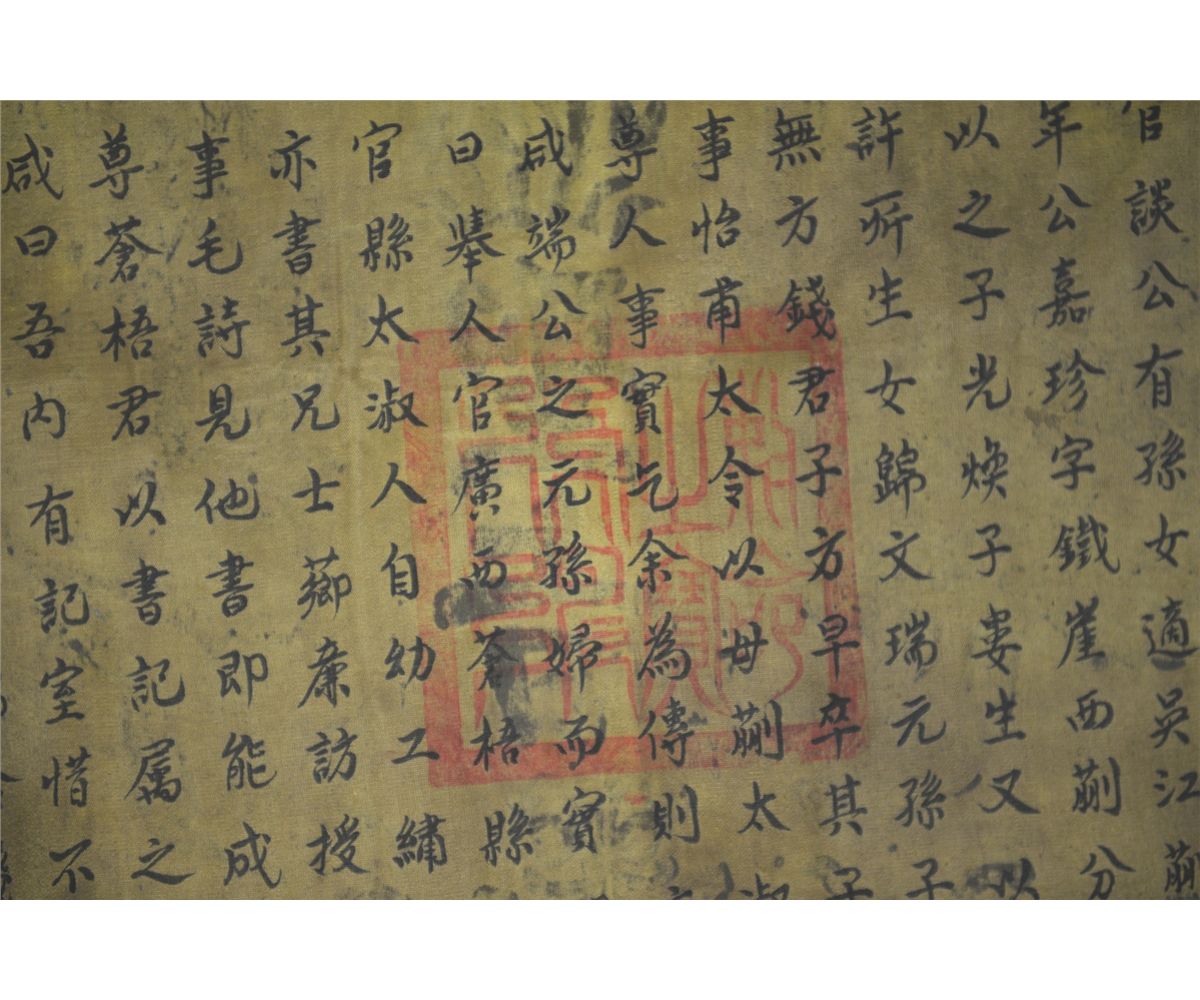 官談公有孫女適吳江蒯
年公嘉珍字鐵崖西蒯分
以之子光煥子婁生又以
許所生女歸文瑞元孫子
無方錢君子方早卒其子
事怡甫太令以母蒯太淑
尊人事實乞余為傳則
咸端公之元孫婦而實
曰舉人官廣西蒼梧縣
官縣太淑人自幼工繡
亦書其兄士薌廉訪授
事毛詩見他書即能成
尊蒼梧君以書記屬之
咸曰吾內有記室惜不